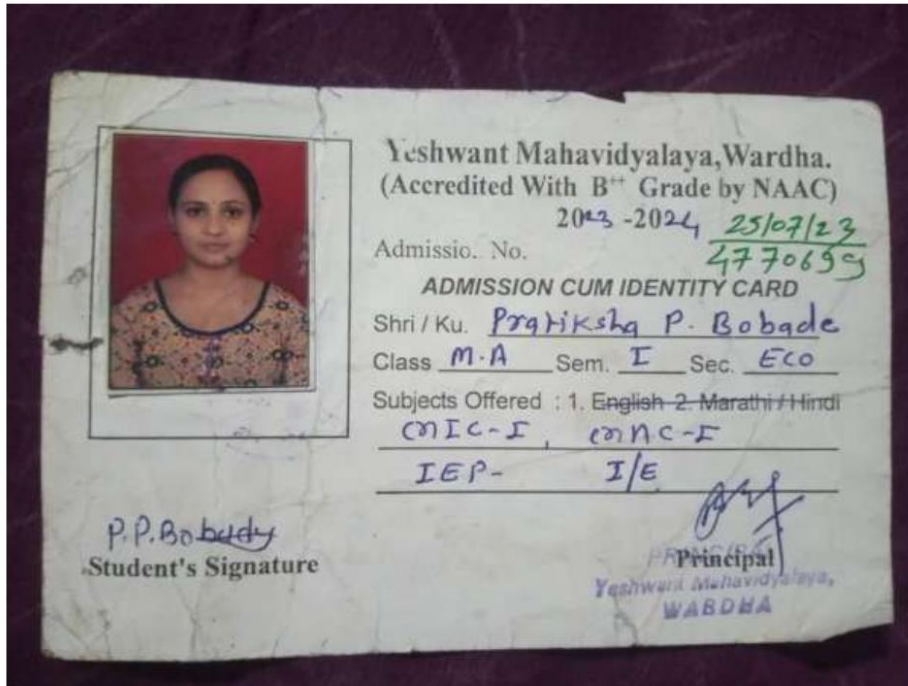 Yeshwant Mahavidyalaya,Wardha.
(Accredited With B++ Grade by NAAC)
2023 -2024 25/07/23
Admissio.. No. 4770699
ADMISSION CUM IDENTITY CARD
Shri / Ku. Pratiksha P. Bobade
Class M.A Sem. I Sec. ECO
Subjects Offered : 1. English 2. Marathi / Hindi
MIC-I, MNC-I
IEP- I/E
P.P.Bobade
Student's Signature
PRINCIPAL
Principal
Yeshwant Mahavidyalaya,
WARDHA